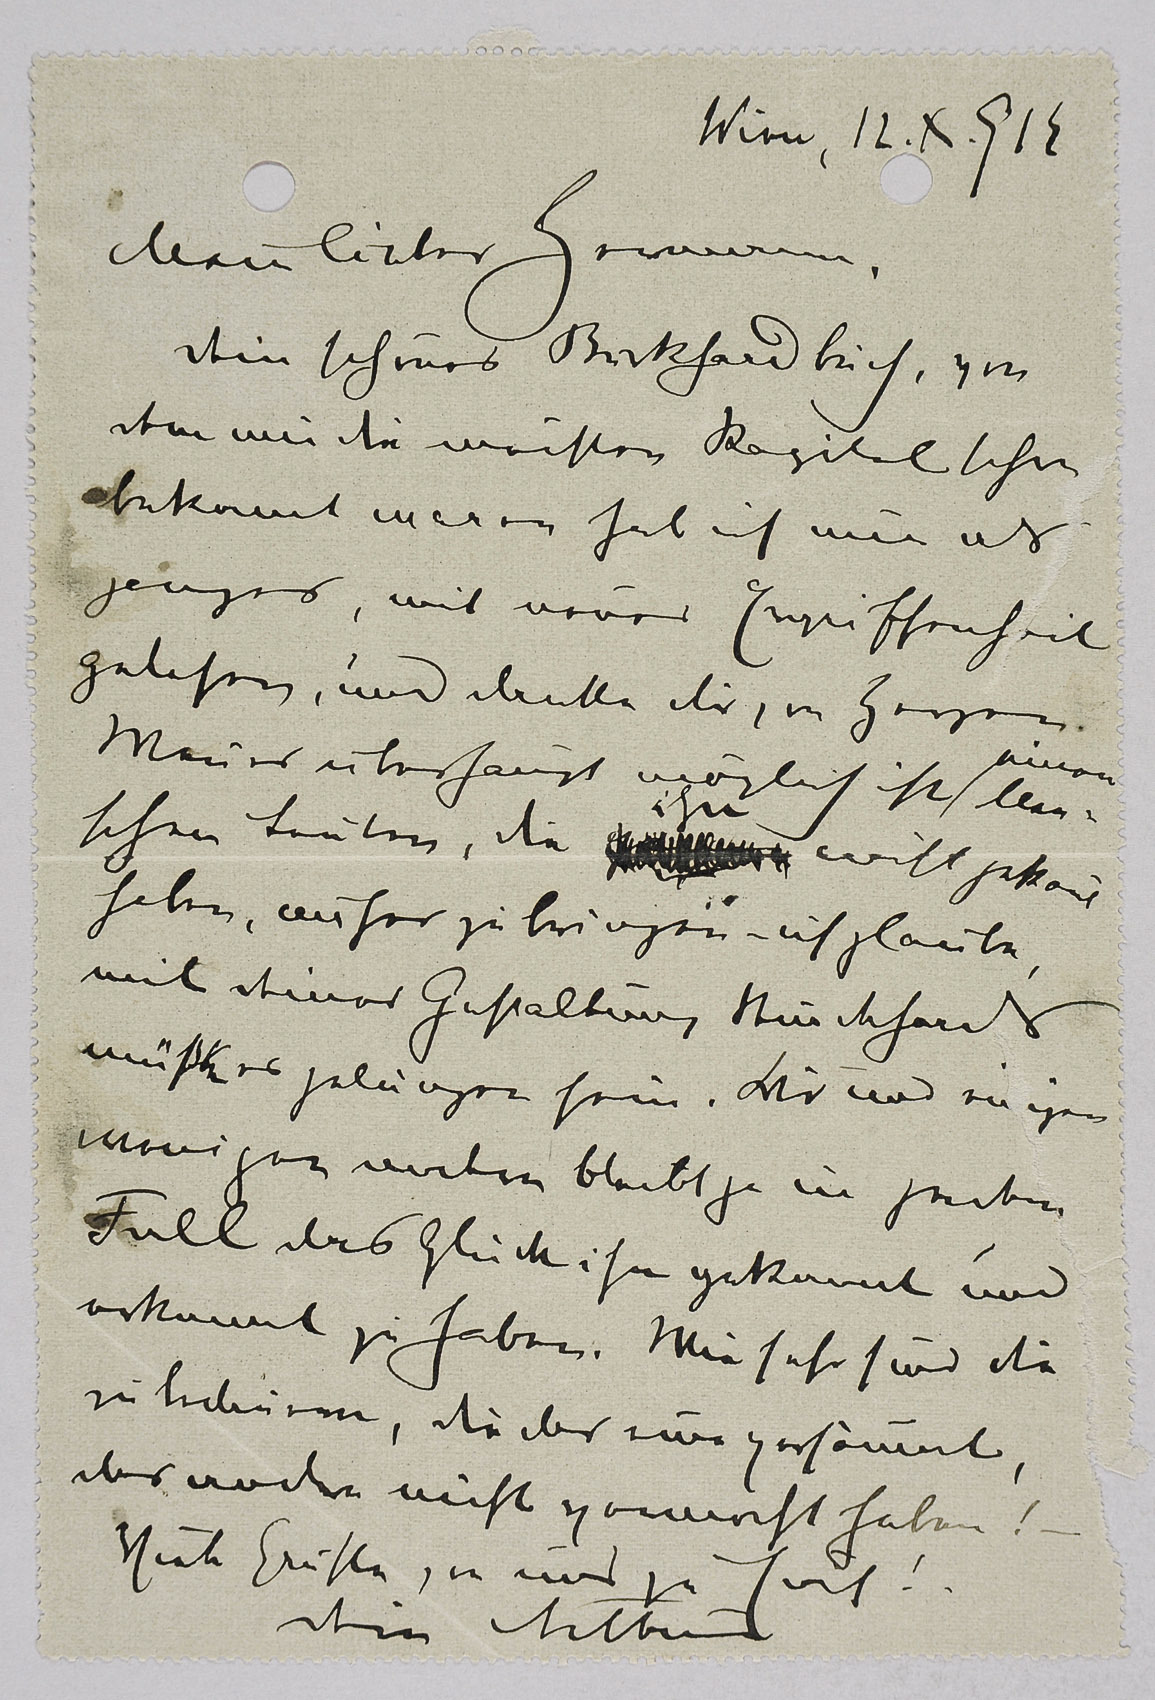 Wien, 12.X.912
Mein lieber Hermann,
dein schönes Burkhardbuch, von
dem mir die meisten Kapitel schon
bekannt waren hab ich nun als
ganzes, mit neuer Ergriffenheit
gelesen, und danke dir,
Wenn es überhaupt möglich ist einen
Menschen Leuten, die ihn nicht gekannt
haben, näher zu bringen – ich glaube,
mit deiner Gestaltung Burckhards
müßte es gelungen sein. Dir und einigen
wenigen andern bleibt ja in jedem
Fall das Glück ihn gekannt und
erkannt zu haben. Wie sehr sind die
zu bedauern, die das eine versäumt,
das andre nicht vermocht haben! –
Viele Grüße, von und zu Haus!
dein Arthur